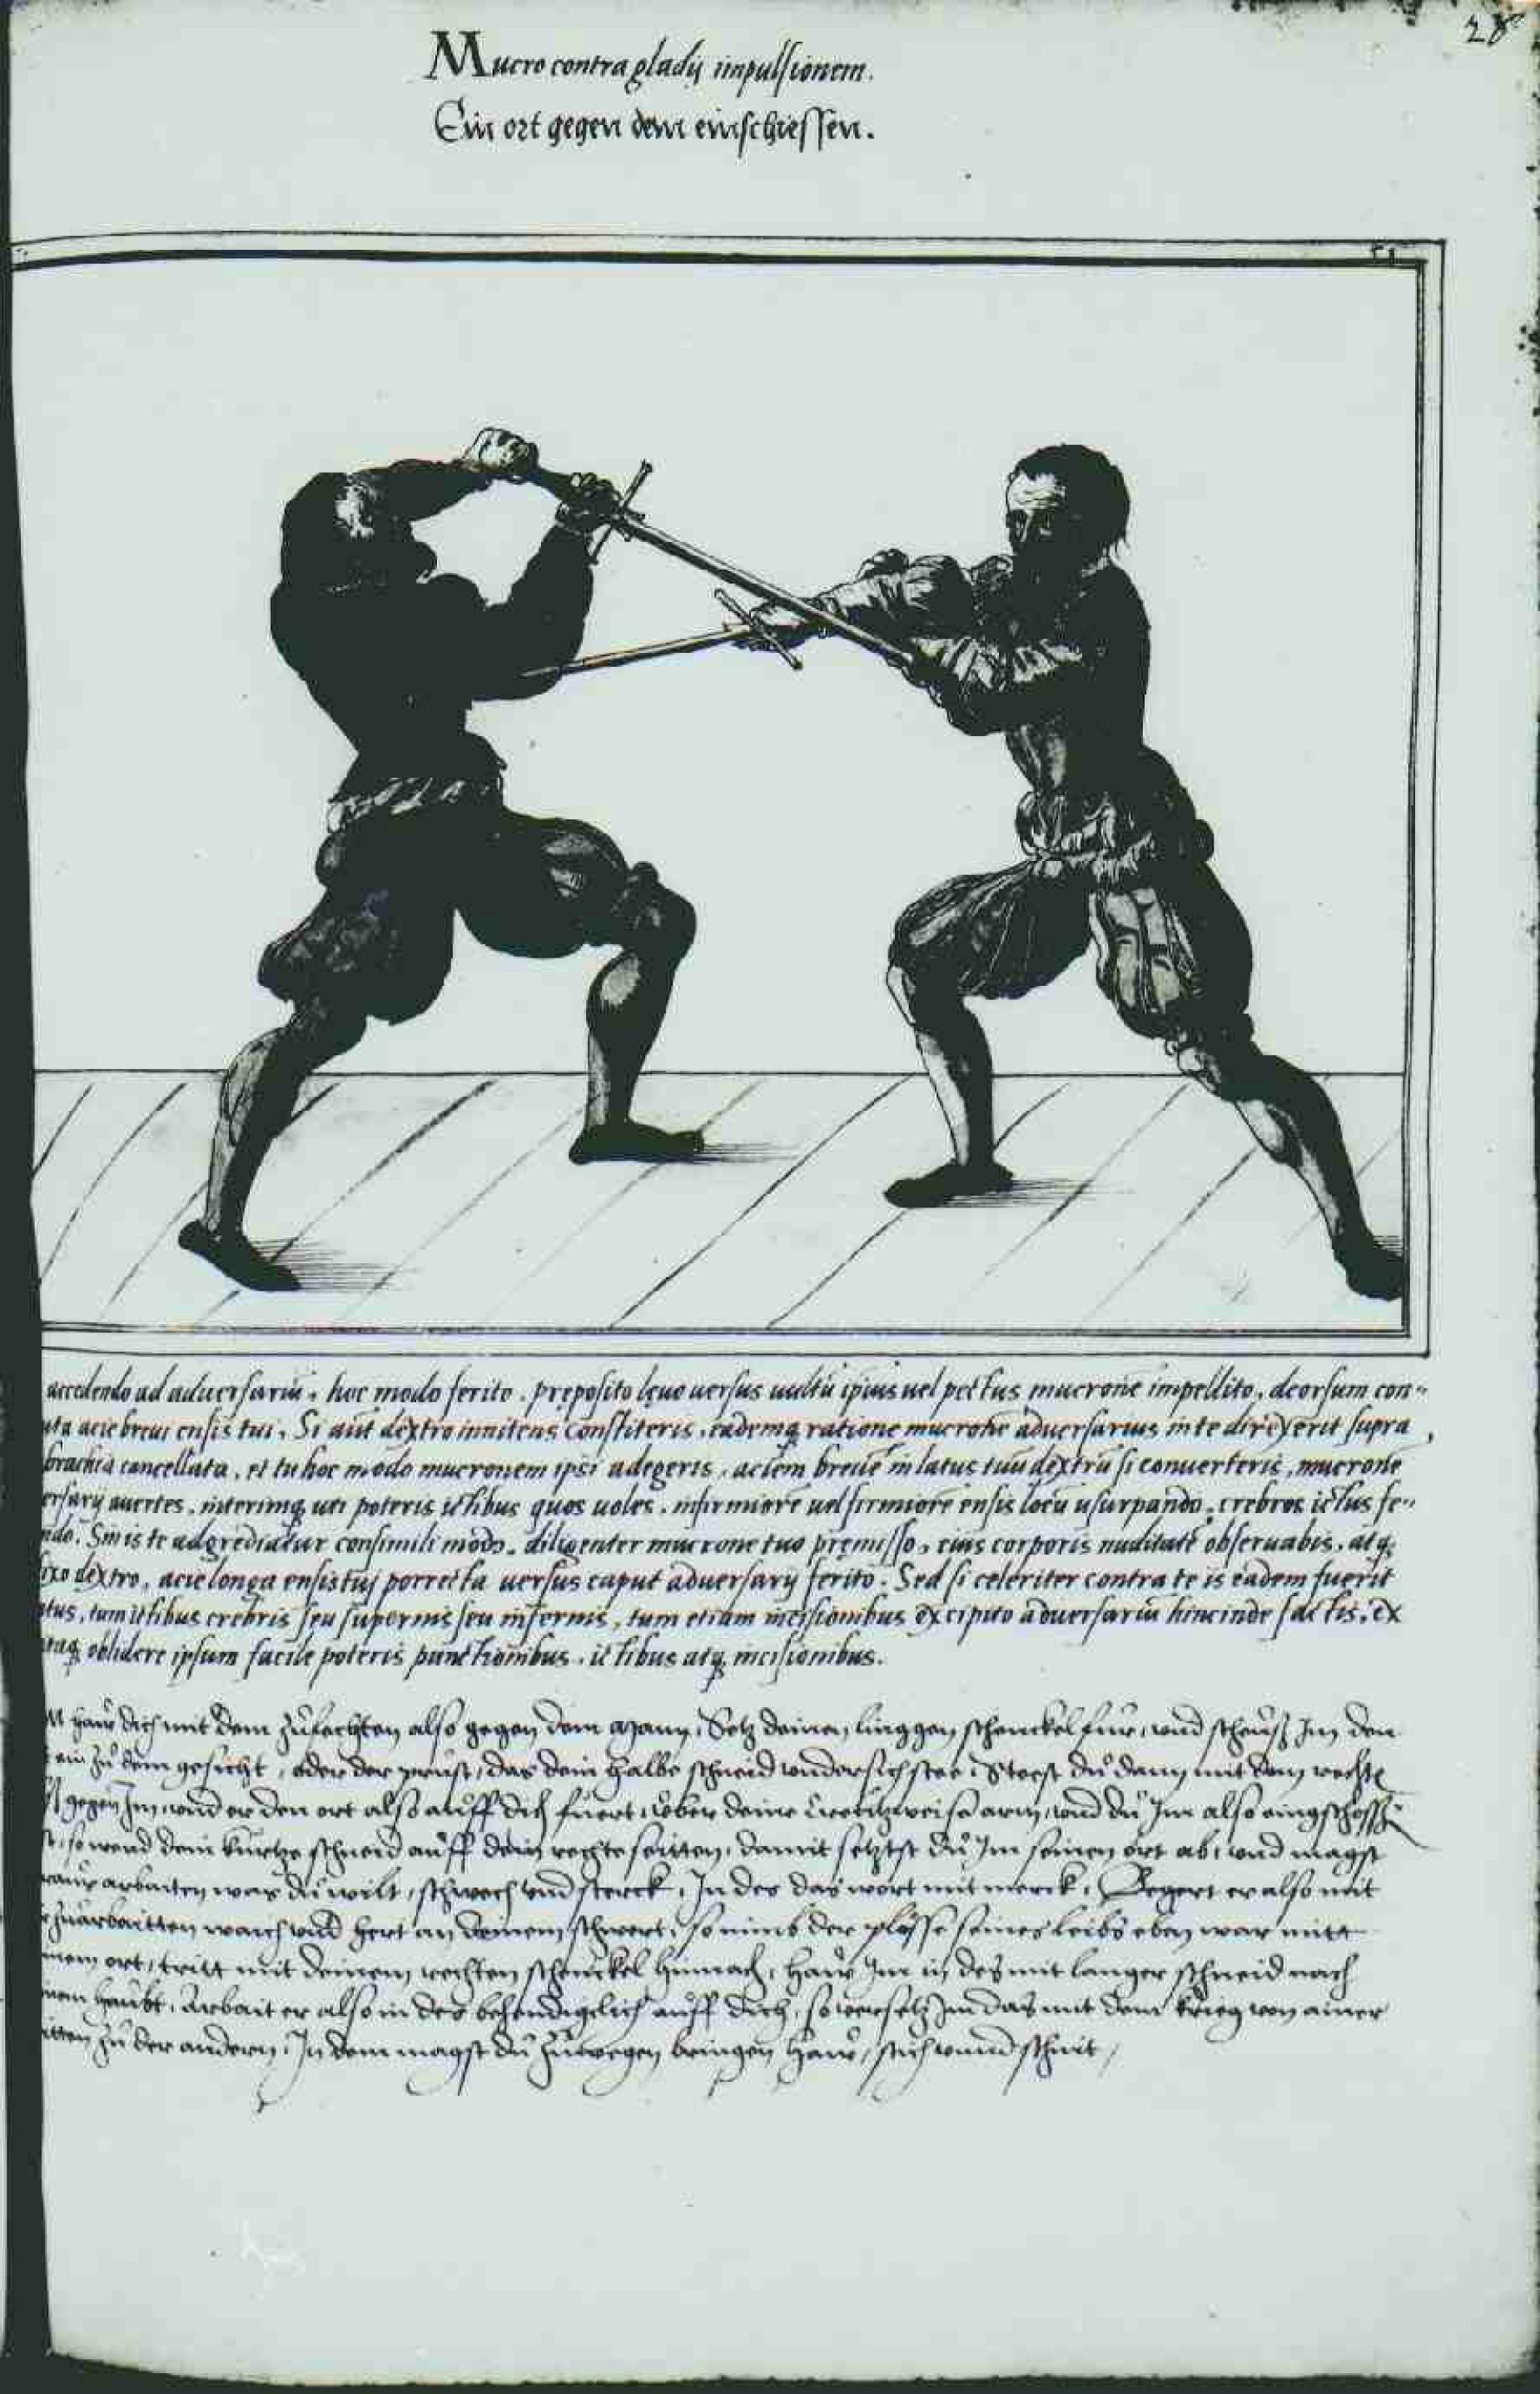 28
Mucro contra gladij impulsionem.
Ein ort gegen dem einschiessen.
51
accedendo ad aduersariũ, hoc modo ferito. pręposito lęuo uersus uultũ ipsius uel pectus mucronẽ impellito, deorsum con-
acie breui ensis tui. Si aũt dextro innitens constiteris, eademq ratione mucronẽ aduersarius in te direxerit supra
brachia cancellata, et tu hoc modo mucronem ipsi adegeris, aciem breuẽ in latus tuũ dextrũ si conuerteris, mucronẽ
auertes, interimq uti poteris ictibus quos uoles, infirmiorẽ uel firmiorẽ ensis locũ usurpando, crebros ictus fe-
Sin is te adgrediatur consimili modo, diligenter mucrone tuo pręmisso, eius corporis nuditatẽ obseruabis, atq
dextro, acie longa ensis tuj porrecta uersus caput aduersarij ferito. Sed si celeriter contra te is eadem fuerit
tum ictibus crebris seu supernis seu infernis, tum etiam incisionibus excipito aduersariũ hincinde factis, ex
oblidere ipsum facile poteris punctionibus, ictibus atq incisionibus.
dich mit dem zůfechten also gegen dem Mann, Setz deinen linggen schenckel für, und scheuß Im den
zů dem gesicht, oder der prust, das dein halbe schneid undersich stee, Steest du dann mit dem rechtẽ
gegen Im, und er den ort also auff dich fuert, über deine creutzweise arm, und du Im also eingschossñ
so wend dein kurtze schneid auff dein rechte seitten, damit setzst du Im seinen ort ab, und magst
arbaiten was du wilt, schwech und sterck, In des das wort mit merck, Begert er also mit
zůarbaitten waich und hert an deinem schwert, so nimb der plösse seines leibs eben war mitt
ort, tritt mit deinem rechten schenckel hinnach, haw Im in des mit langer schneid nach
haubt, Arbait er also in des behendigclich auff dich, so versetz Im das mit dem krieg von ainer
zů der andern, In dem magst du zůwegen bringen haw, stich unnd schnit,